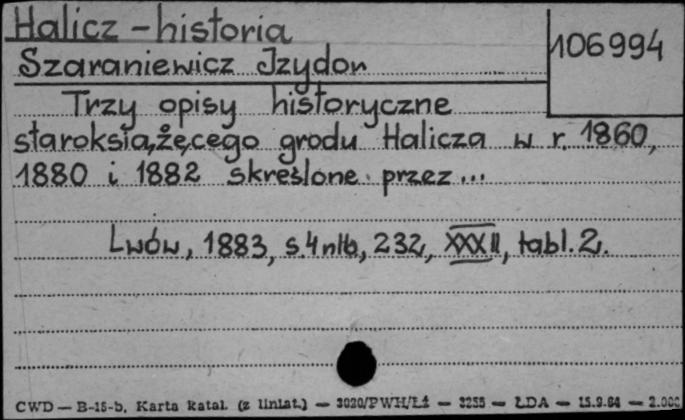 Halicz – historia
106994
Szaraniewicz Izydor
Trzy opisy historyczne
staroksiążęcego grodu Halicza w r. 1860,
1880 i 1882 skreślone przez...
Lwów, 1883, s. 4 nlb, 232, XXXII, tabl. 2.
CWD — B-15-b, Karta katal. (z liniat.) — 3020/PWH/Łż — 3255 — ŁDA — 15.9.64 — 2.000